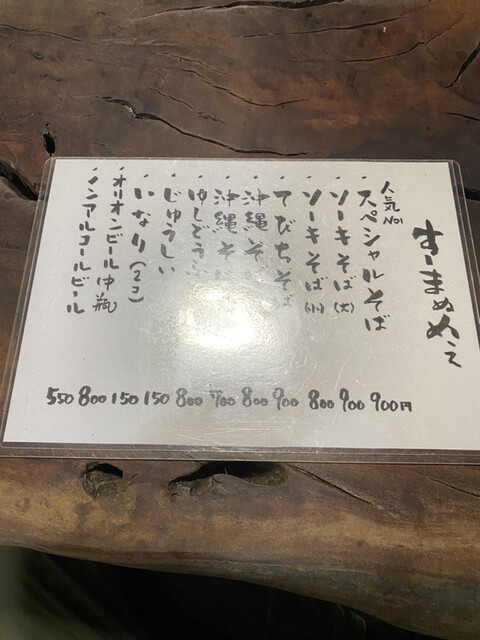 すーまぬめえ
人気No1
・スペシャルそば 900円
・ソーキそば(大) 900
・ソーキそば(小) 800
・てびちそば 900
・沖縄そば 800
・沖縄そば 700
・ゆしどうふ 800
・じゅうしい 150
・いなり(2コ) 150
・オリオンビール中瓶 800
・ノンアルコールビール 550